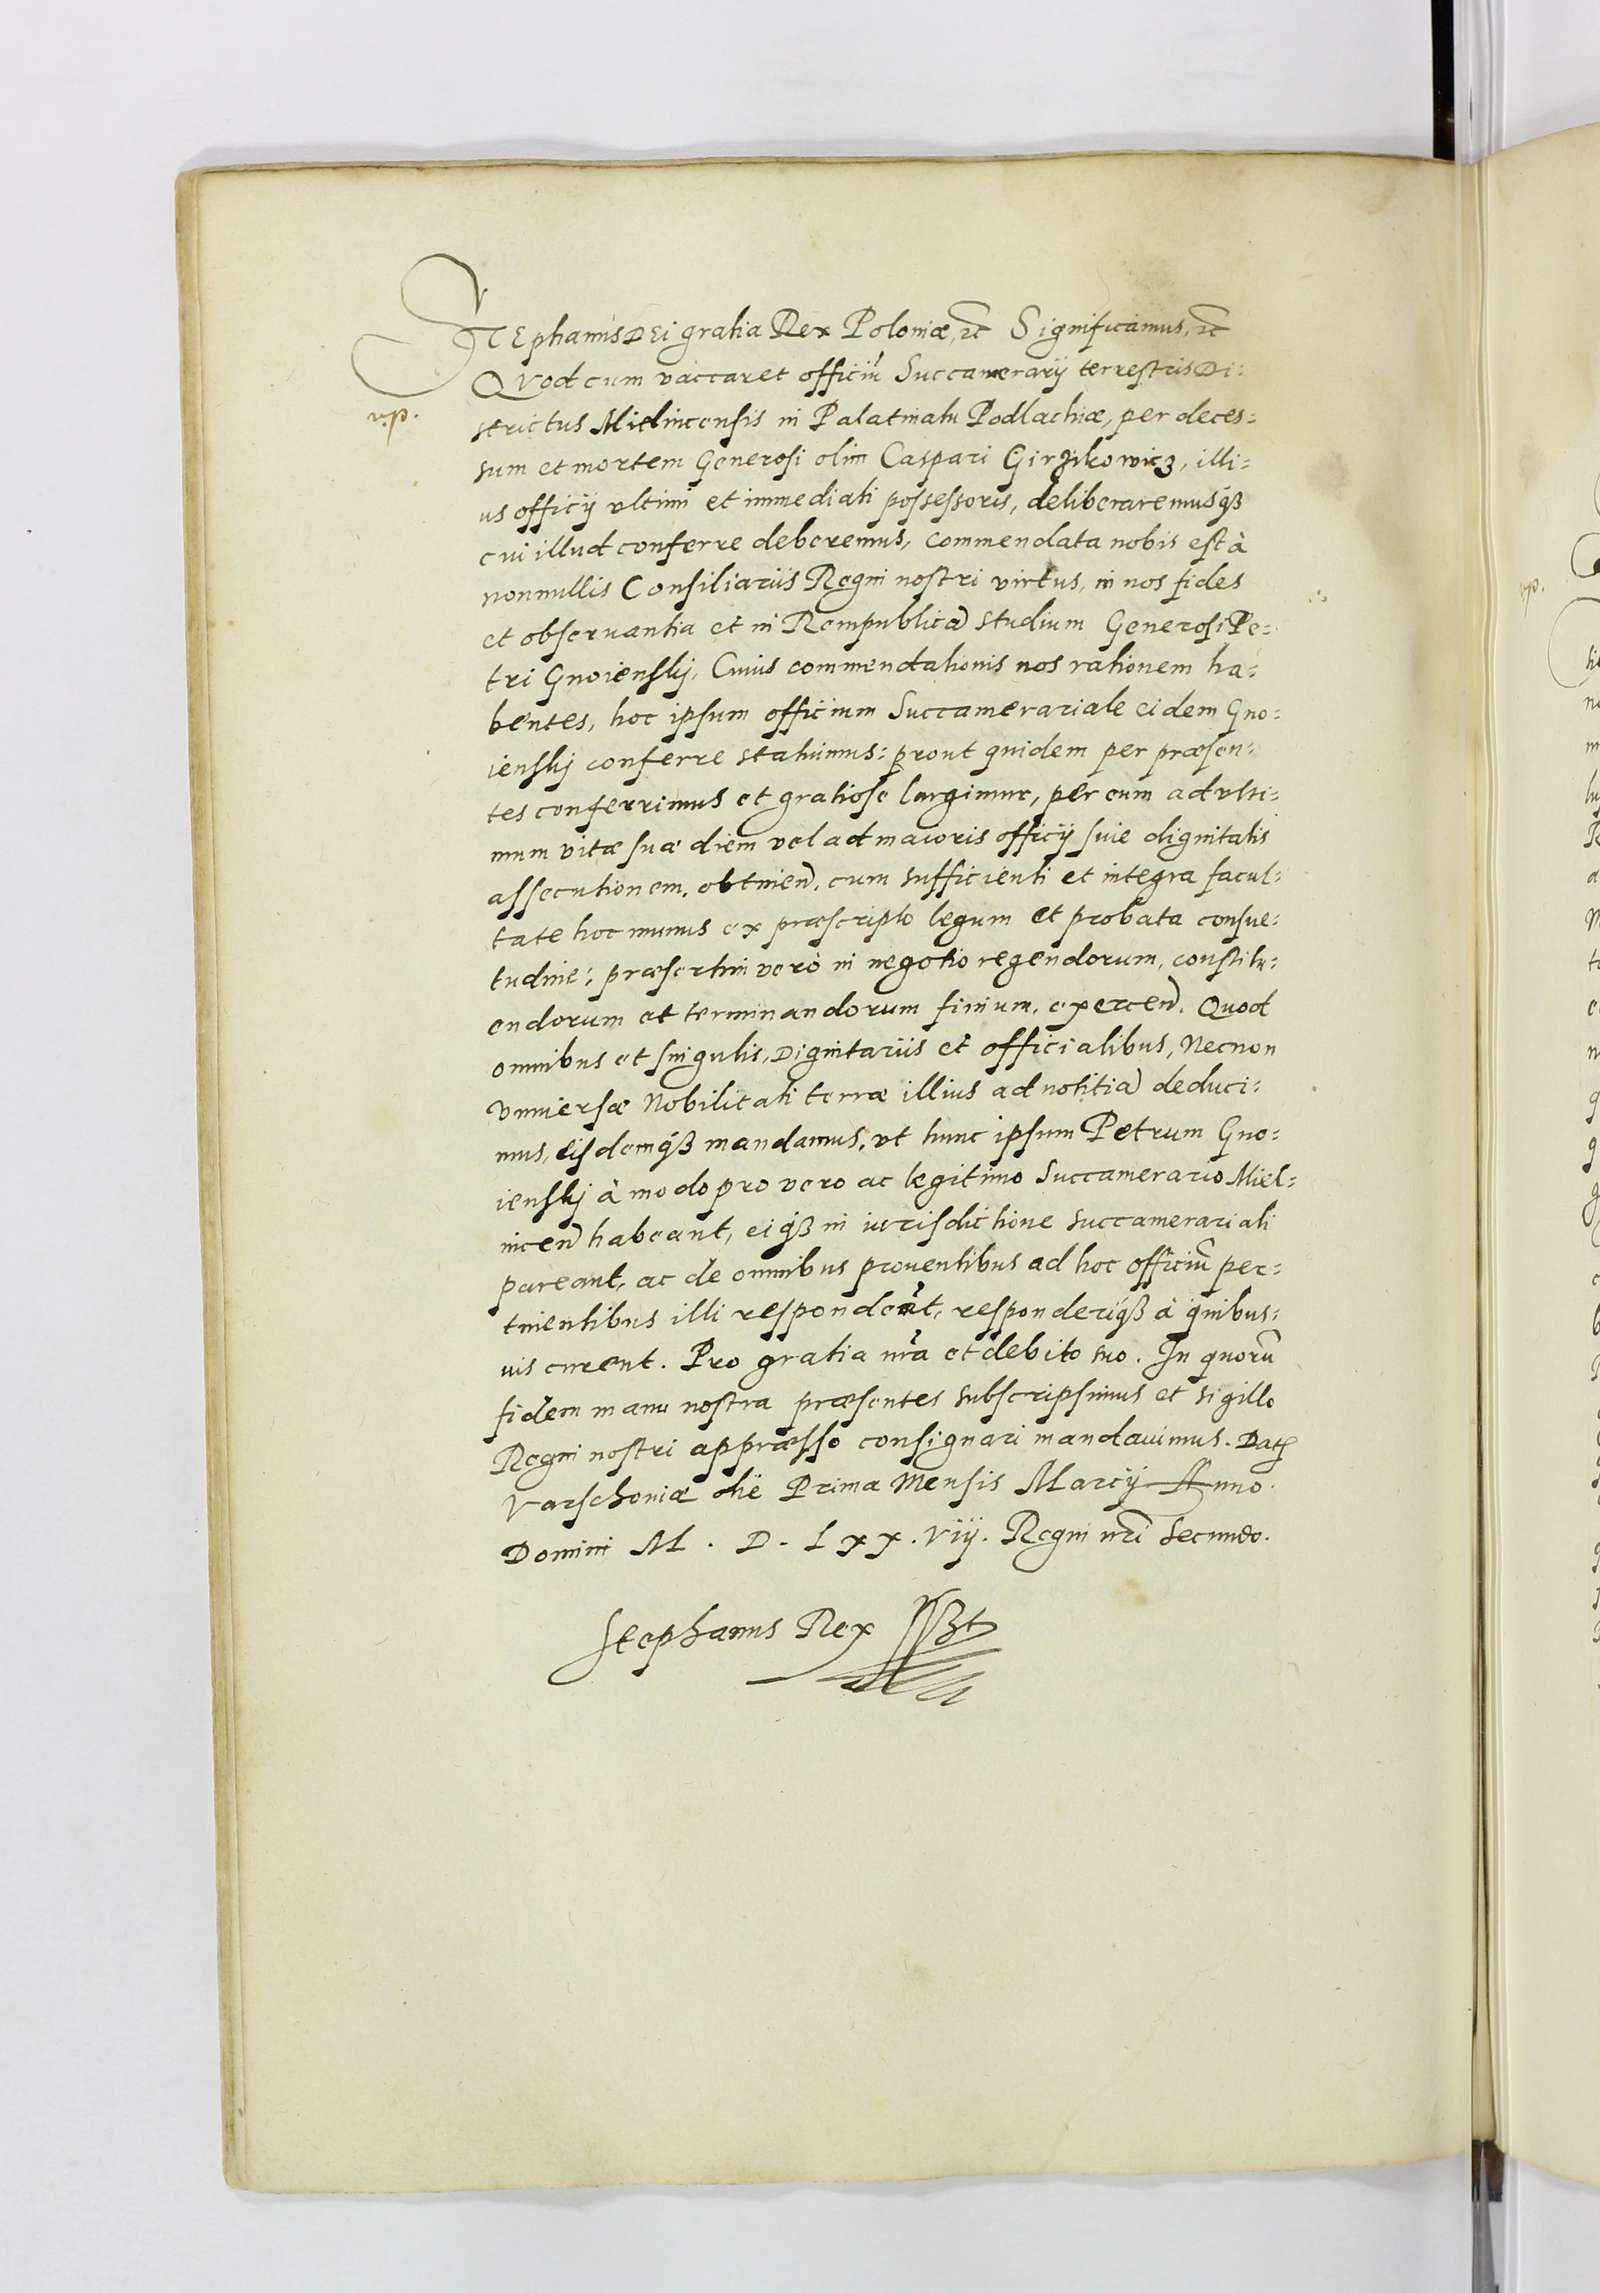 STEphanus DEi gratia Rex Poloniæ, etc Significamus, etc
Quod cum vaccaret officiū Succamerarij terrestris Di:
vip.
strictus Mielnicensis in Palatinatu Podlachiæ, per deces:
sum et mortem Generosi olim Caspari Girzikowicz, illi:
us officij vltimi et immediati possessoris, deliberaremusqȝ
cui illud conferre deberemus, commendata nobis est à
nonnullis Consiliariis Regni nostri virtus, in nos fides
et obseruantia et in Rempublicā studium Generosi Pe:
tri Gnoienskij. Cuius commendationis nos rationem ha:
bentes, hoc ipsum officium Succamerariale eidem Gno:
ienskij conferre statuimus: prout quidem per præsen:
tes conferrimus et gratiose largimur, per eum ad vlti:
mum vitæ suæ diem vel ad maioris officij siue dignitatis
assecutionem, obtinen̄. cum sufficienti et integra facul:
tate hoc munus ex præscripto legum et probata consue:
tudine: præsertim verò in negotio regendorum, constitu:
endorum et terminandorum finium, exercen̄. Quod
omnibus et singulis, Dignitariis et officialibus, Necnon
Vniuersæ Nobilitati terræ illius ad notitiā deduci:
mus, eisdemqȝ mandamus, vt hunc ipsum Petrum Gno:
ienskij à modo pro vero ac legitimo Succamerario Miel:
nicen̄ habeant, eiqȝ in iurisdictione succamerariali
pareant, ac de omnibus prouentibus ad hoc officiū per:
tinentibus illi respondeāt, responderiqȝ à quibus:
uis curent. Pro gratia nr̄a et debito suo. In quorū
fidem manu nostra præsentes subscripsimus et sigillo
Regni nostri appræsso consignari mandauimus. Datꝭ
Varschoniæ die Prima Mensis Marcij Anno
Domini M. D. Lxx. Viij. Regni nr̄i Secundo.
Stephanus Rex sszt